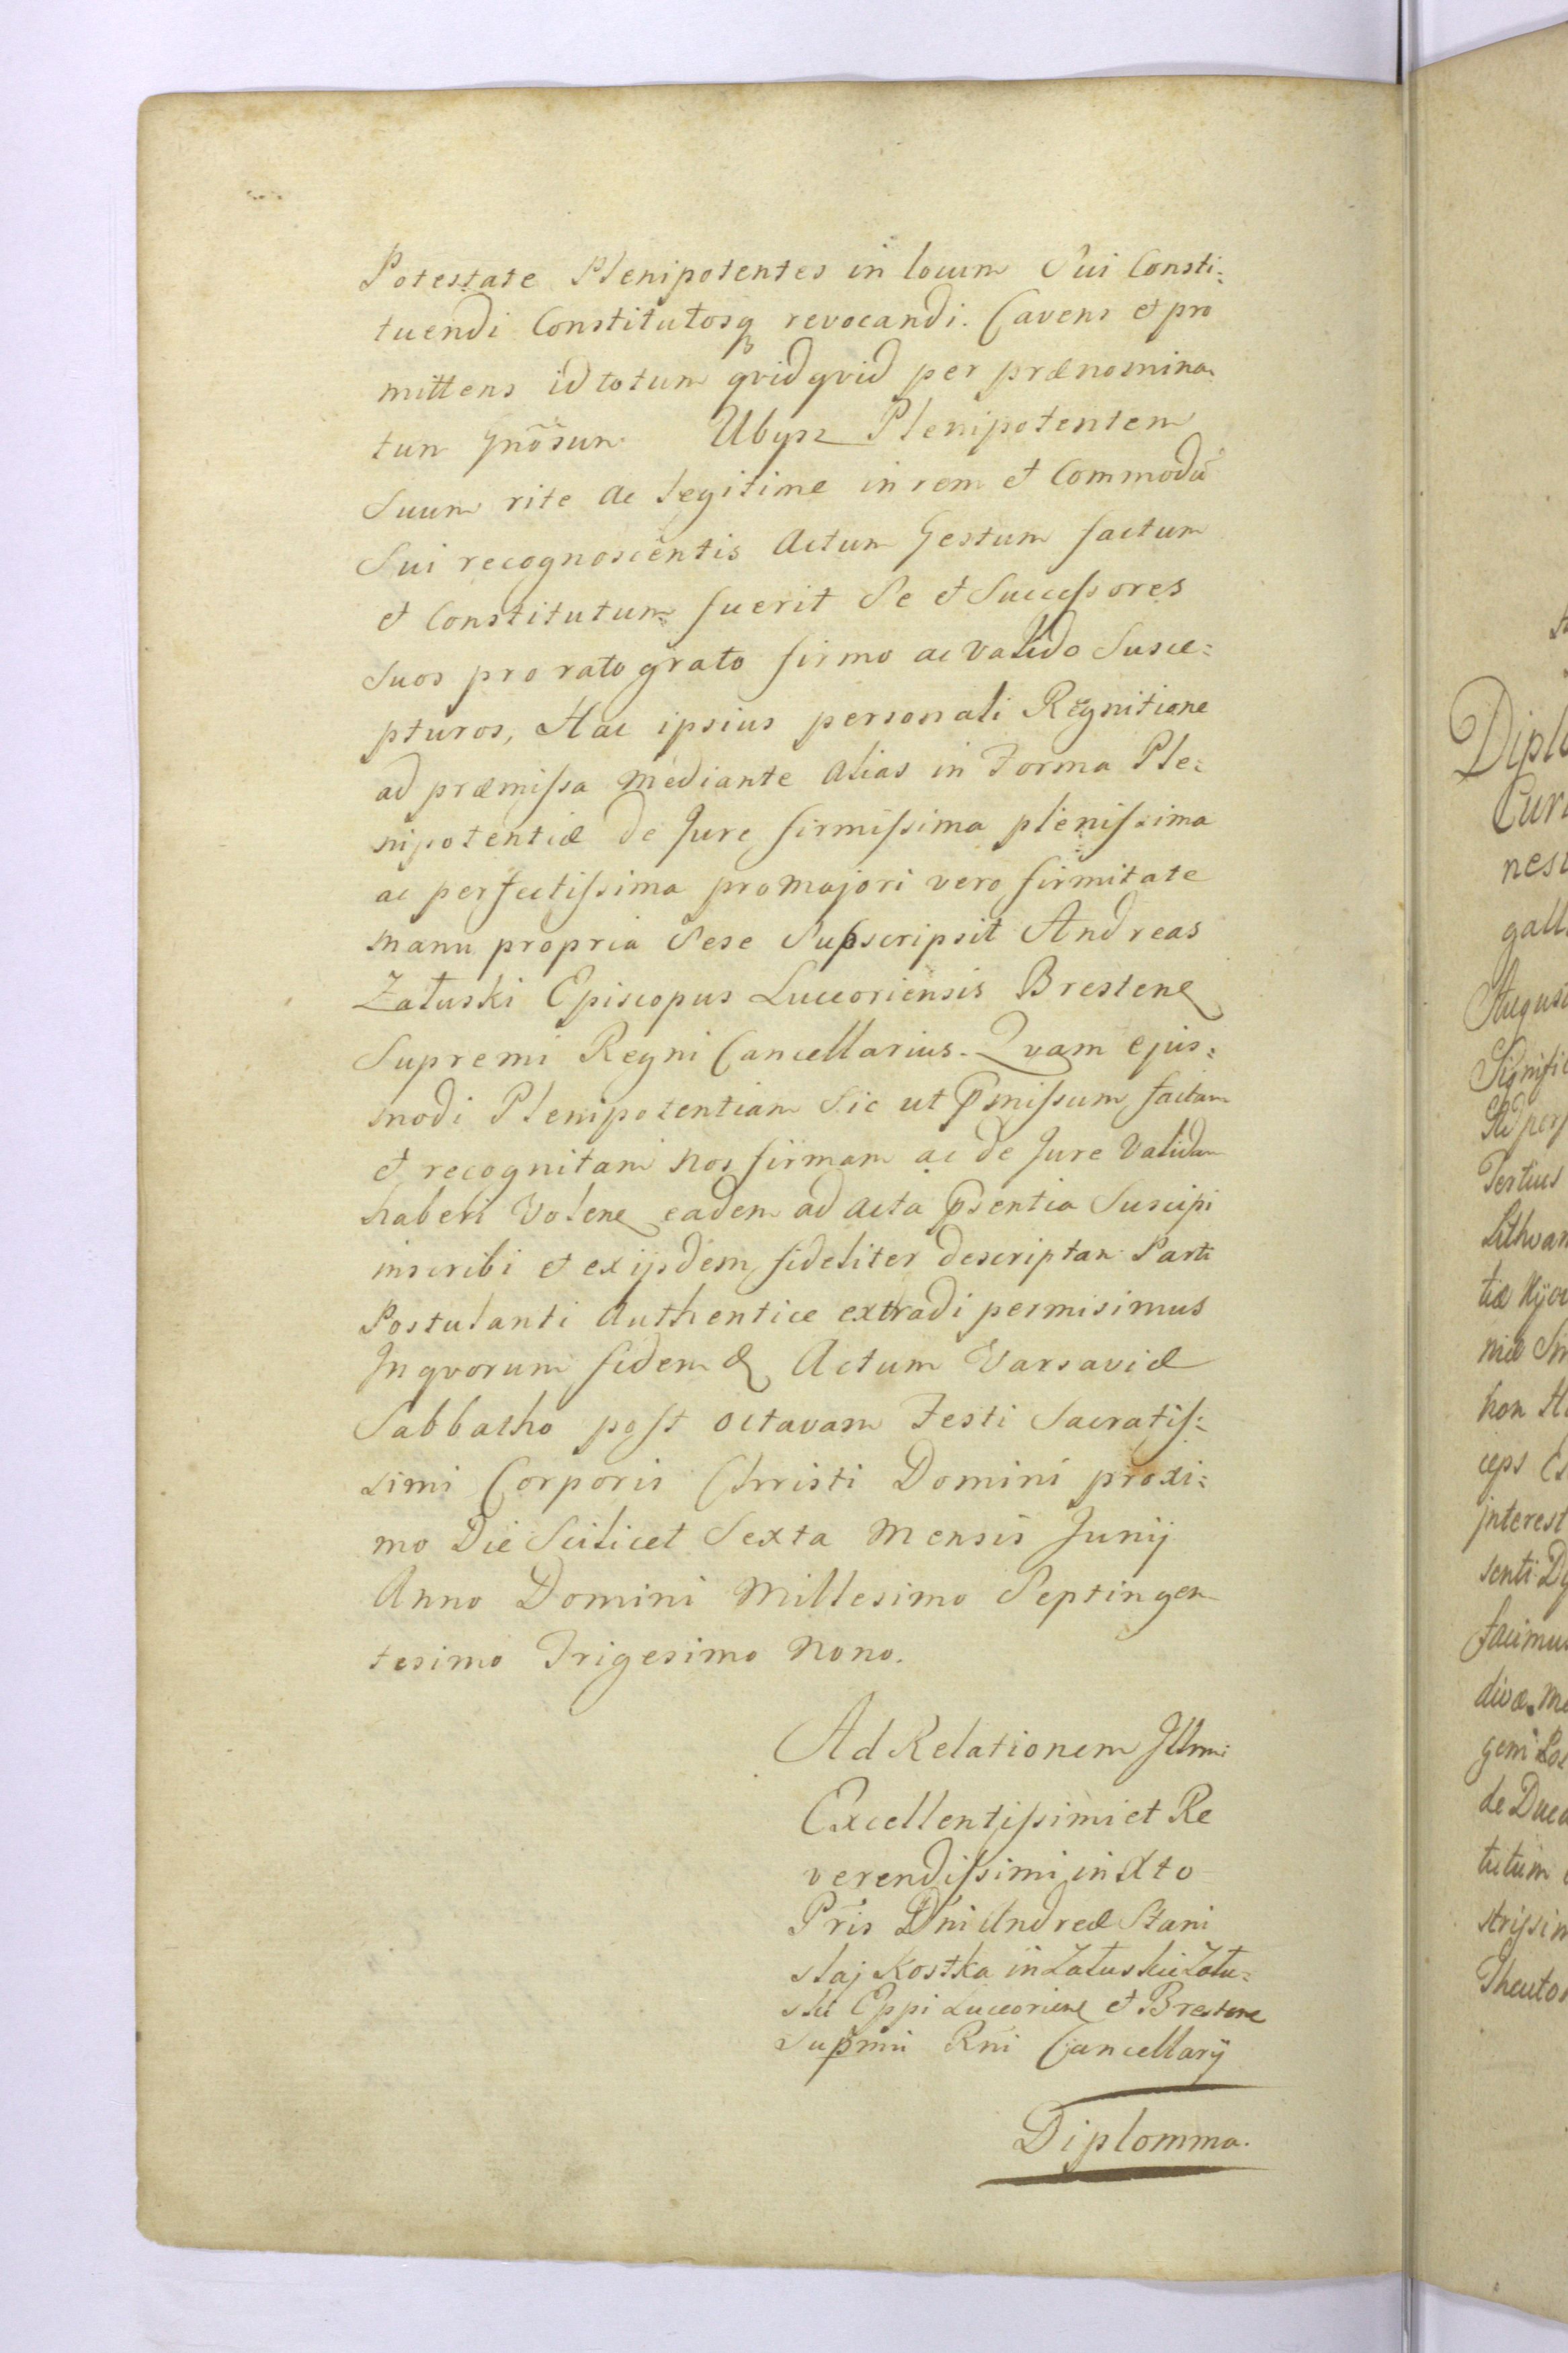 Potestate Plenipotentes in locum Sui Consti:
tuendi Constitutosq revocandi. Cavens et pro
mittens id totum qvidqvid per prænomina
tum Gnõsum Ubysz Plenipotentem
Suum rite ac legitime in rem et Commodũ
Sui recognoscentis Actum Gestum factum
et Constitutum fuerit Se et Successores
Suos pro rato grato firmo ac valido Susce:
pturos, Hac ipsius personali Recgnitione
ad præmissa mediante alias in Forma Ple:
nipotentiæ de Jure firmissima plenissima
ac perfectissima pro majori vero firmitate
manu propria Sese Subscripsit Andreas
Załuski Episcopus Luceoriensis Brestene
Supremi Regni Cancellarius. Qvam ejus:
modi Plenipotentiam Sic ut pmissum factam
et recognitam nos firmam ac de Jure Validam
haberi Volene eadem ad acta psentia Suscipi
inscribi et ex ijsdem fideliter descriptam Parti
Postulanti Authentice extradi permisimus
In qvorum fidem & Actum Varsaviæ
Sabbatho post octavam Festi Sacratis:
simi Corporis Christi Domini proxi:
mo Die Scilicet Sexta Mensis Junij
Anno Domini Millesimo Septingen
tesimo Trigesimo Nono.
Ad Relationem Illmi
Excellentissimi et Re
verendissimi in Xto
Pris Dni Andreæ Stani
slaj Kostka in Załuskie Zału:
ski Eppi Luceoriene et Brestene
Supmi Rni Cancellarij
Diplomma.
Diplo
Cur
nes
gall
Augus
Signific
Ad perp
Tertius
Lithvan
tiæ Kijov
niæ Sm
non
ceps
interest
senti
facimus
divæ
geni
de Duca
tutum
stripsim
Theuto